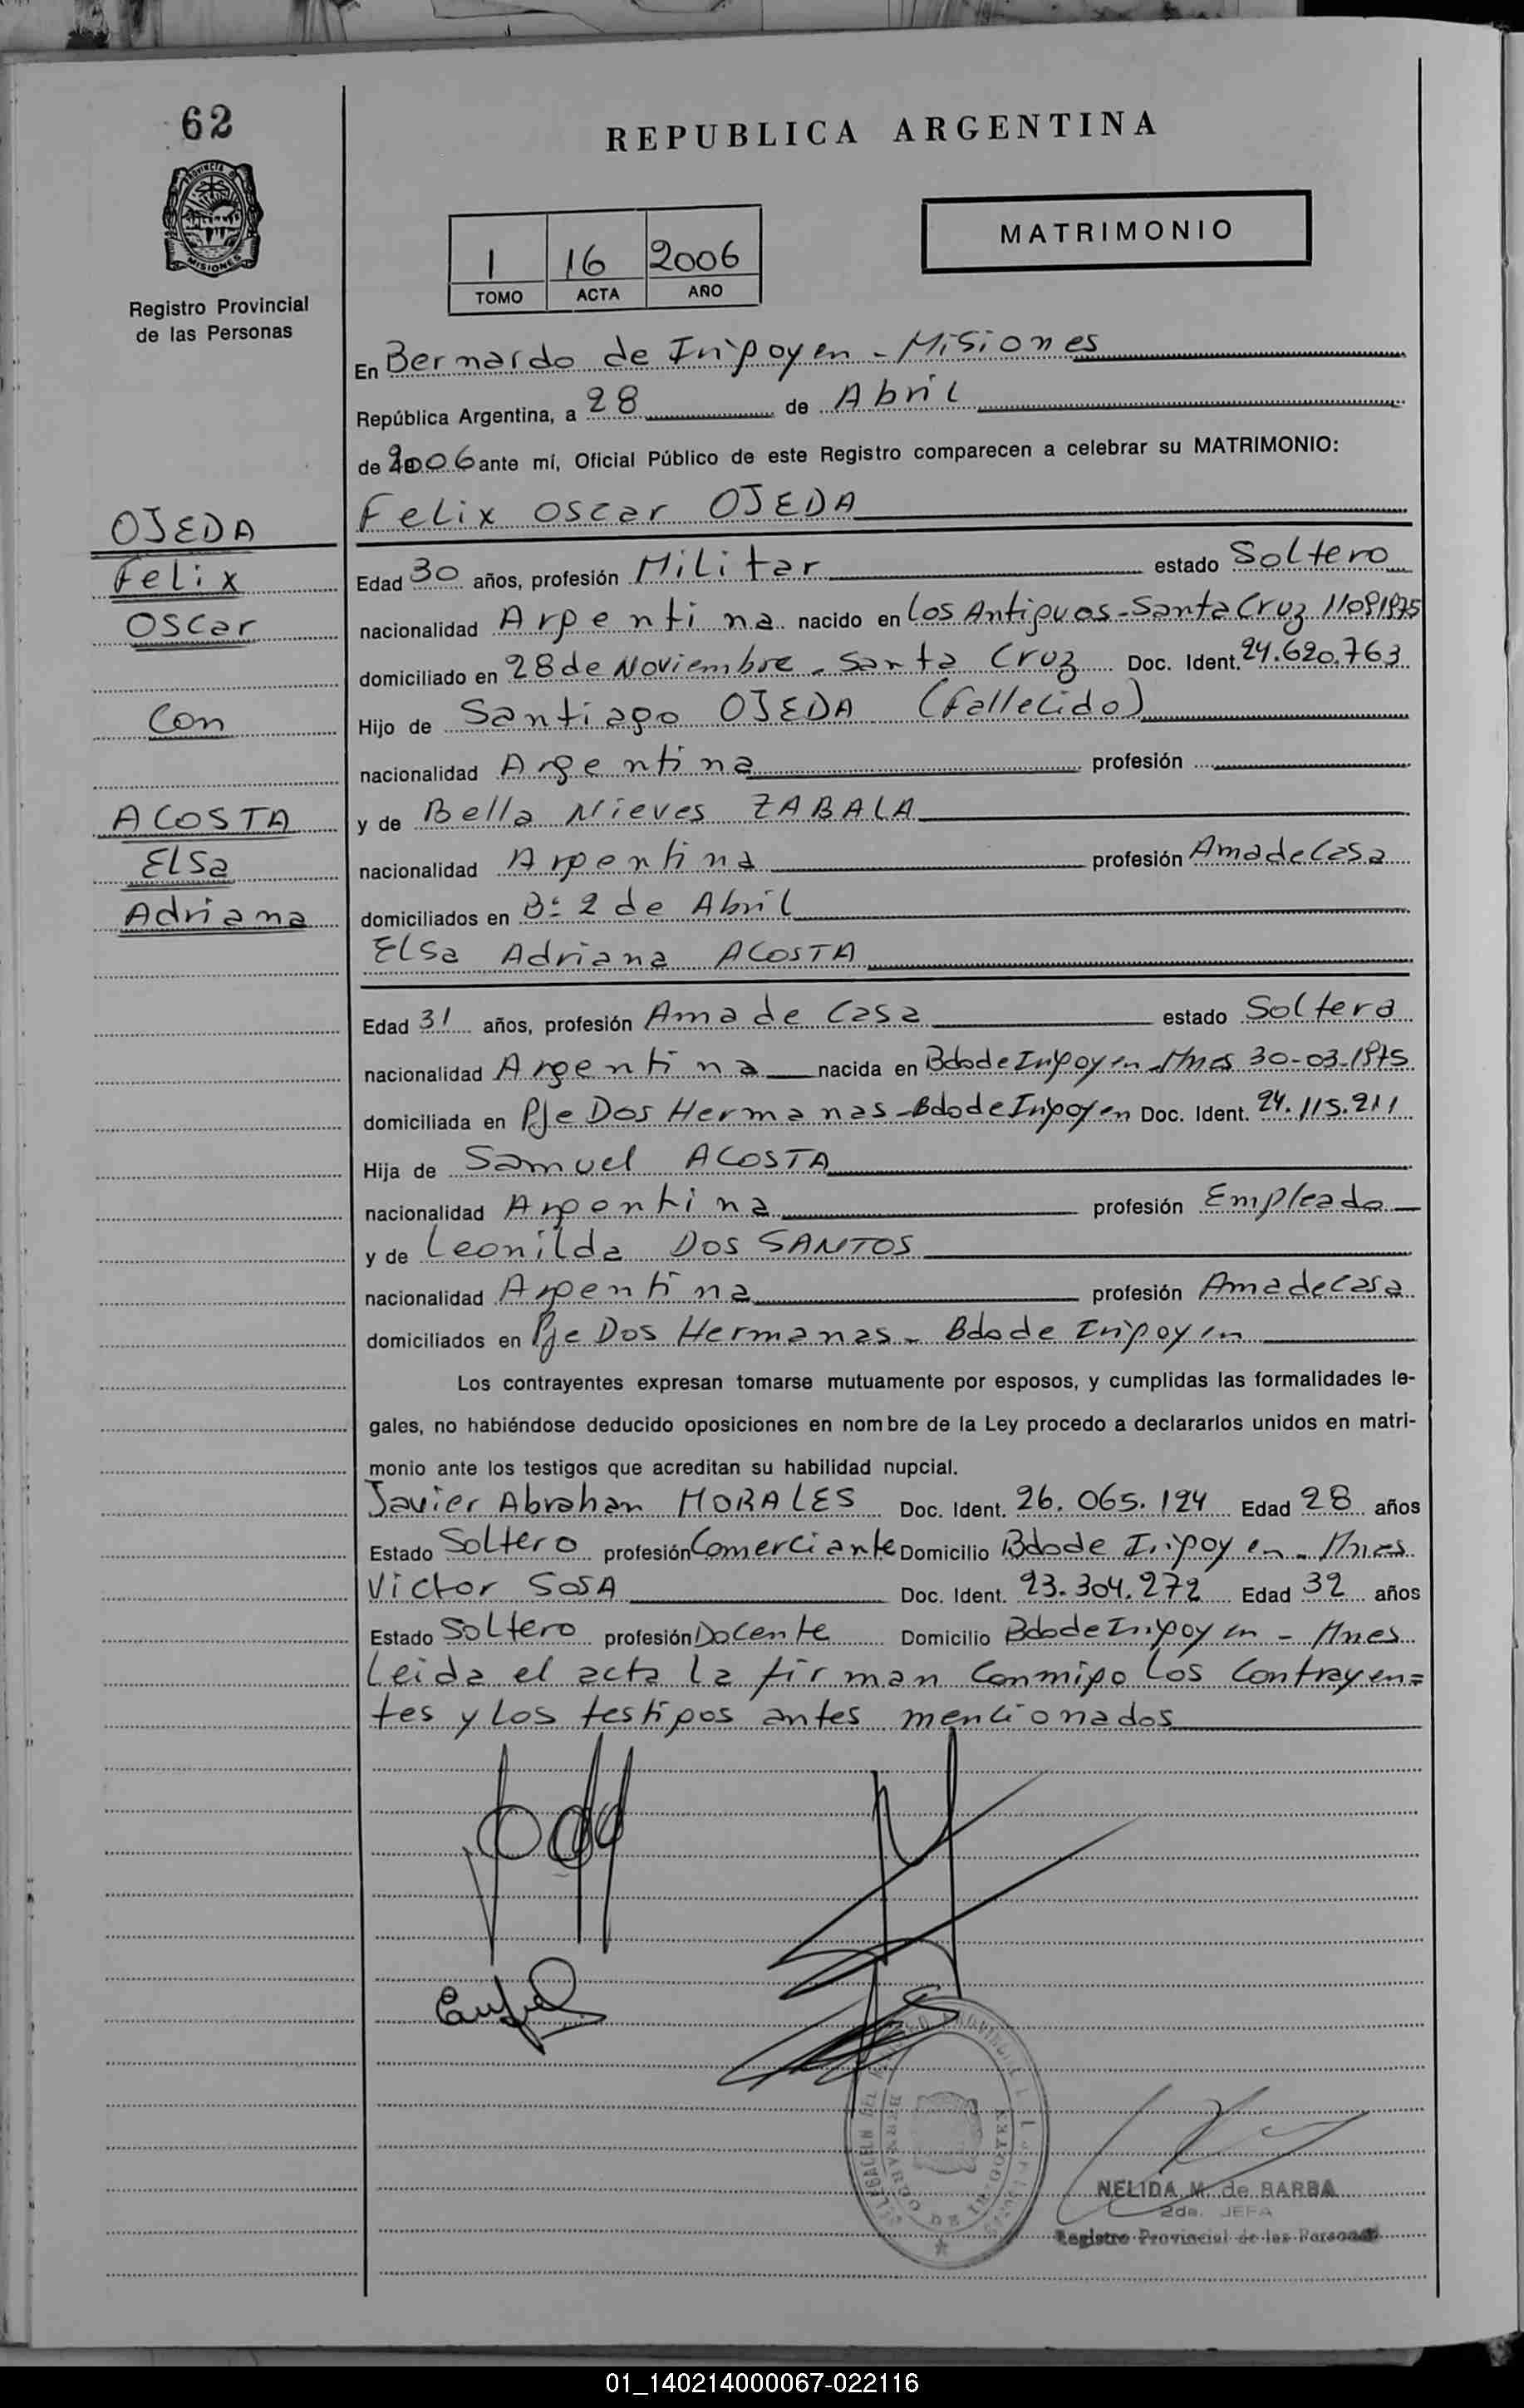 62
PROVINCIA DE
MISIONES
Registro Provincial
de las Personas
REPUBLICA ARGENTINA
1 16 2006
TOMO ACTA AÑO
MATRIMONIO
En Bernardo de Irigoyen - Misiones
República Argentina, a 28 de Abril
de 2006 ante mí, Oficial Público de este Registro comparecen a celebrar su MATRIMONIO:
OJEDA
Felix
Oscar
Con
ACOSTA
Elsa
Adriana
Felix Oscar OJEDA
Edad 30 años, profesión Militar estado Soltero
nacionalidad Argentina nacido en Los Antiguos - Santa Cruz 11091975
domiciliado en 28 de Noviembre - Santa Cruz Doc. Ident. 24.620.763
Hijo de Santiago OJEDA (Fallecido)
nacionalidad Argentina profesión
y de Bella Nieves ZABALA
nacionalidad Argentina profesión Ama de Casa
domiciliados en Bº 2 de Abril
Elsa Adriana ACOSTA
Edad 31 años, profesión Ama de Casa estado Soltera
nacionalidad Argentina nacida en Bdo de Irigoyen - Mnes 30-03-1975
domiciliada en Pje Dos Hermanas - Bdo de Irigoyen Doc. Ident. 24.115.211
Hija de Samuel ACOSTA
nacionalidad Argentina profesión Empleado
y de Leonilda DOS SANTOS
nacionalidad Argentina profesión Ama de Casa
domiciliados en Pje Dos Hermanas - Bdo de Irigoyen
Los contrayentes expresan tomarse mutuamente por esposos, y cumplidas las formalidades le-
gales, no habiéndose deducido oposiciones en nombre de la Ley procedo a declararlos unidos en matri-
monio ante los testigos que acreditan su habilidad nupcial.
Javier Abrahan MORALES Doc. Ident. 26.065.194 Edad 28 años
Estado Soltero profesión Comerciante Domicilio Bdo de Irigoyen - Mnes
Victor SOSA Doc. Ident. 23.304.272 Edad 32 años
Estado Soltero profesión Docente Domicilio Bdo de Irigoyen - Mnes
Leida el acta la firman conmigo los contrayen=
tes y los testigos antes mencionados
NELIDA M. de BARBA
2da. JEFA
Registro Provincial de las Personas
01_140214000067-022116